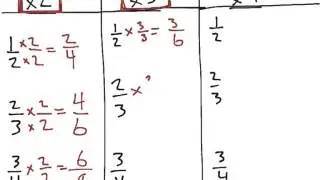 x2 x3
1/2 x 2/2 = 2/4 1/2 x 3/3 = 3/6 1/2
2/3 x 2/2 = 4/6 2/3 x 2/3
3/4 x 2/2 = 6/ 3/4 3/4